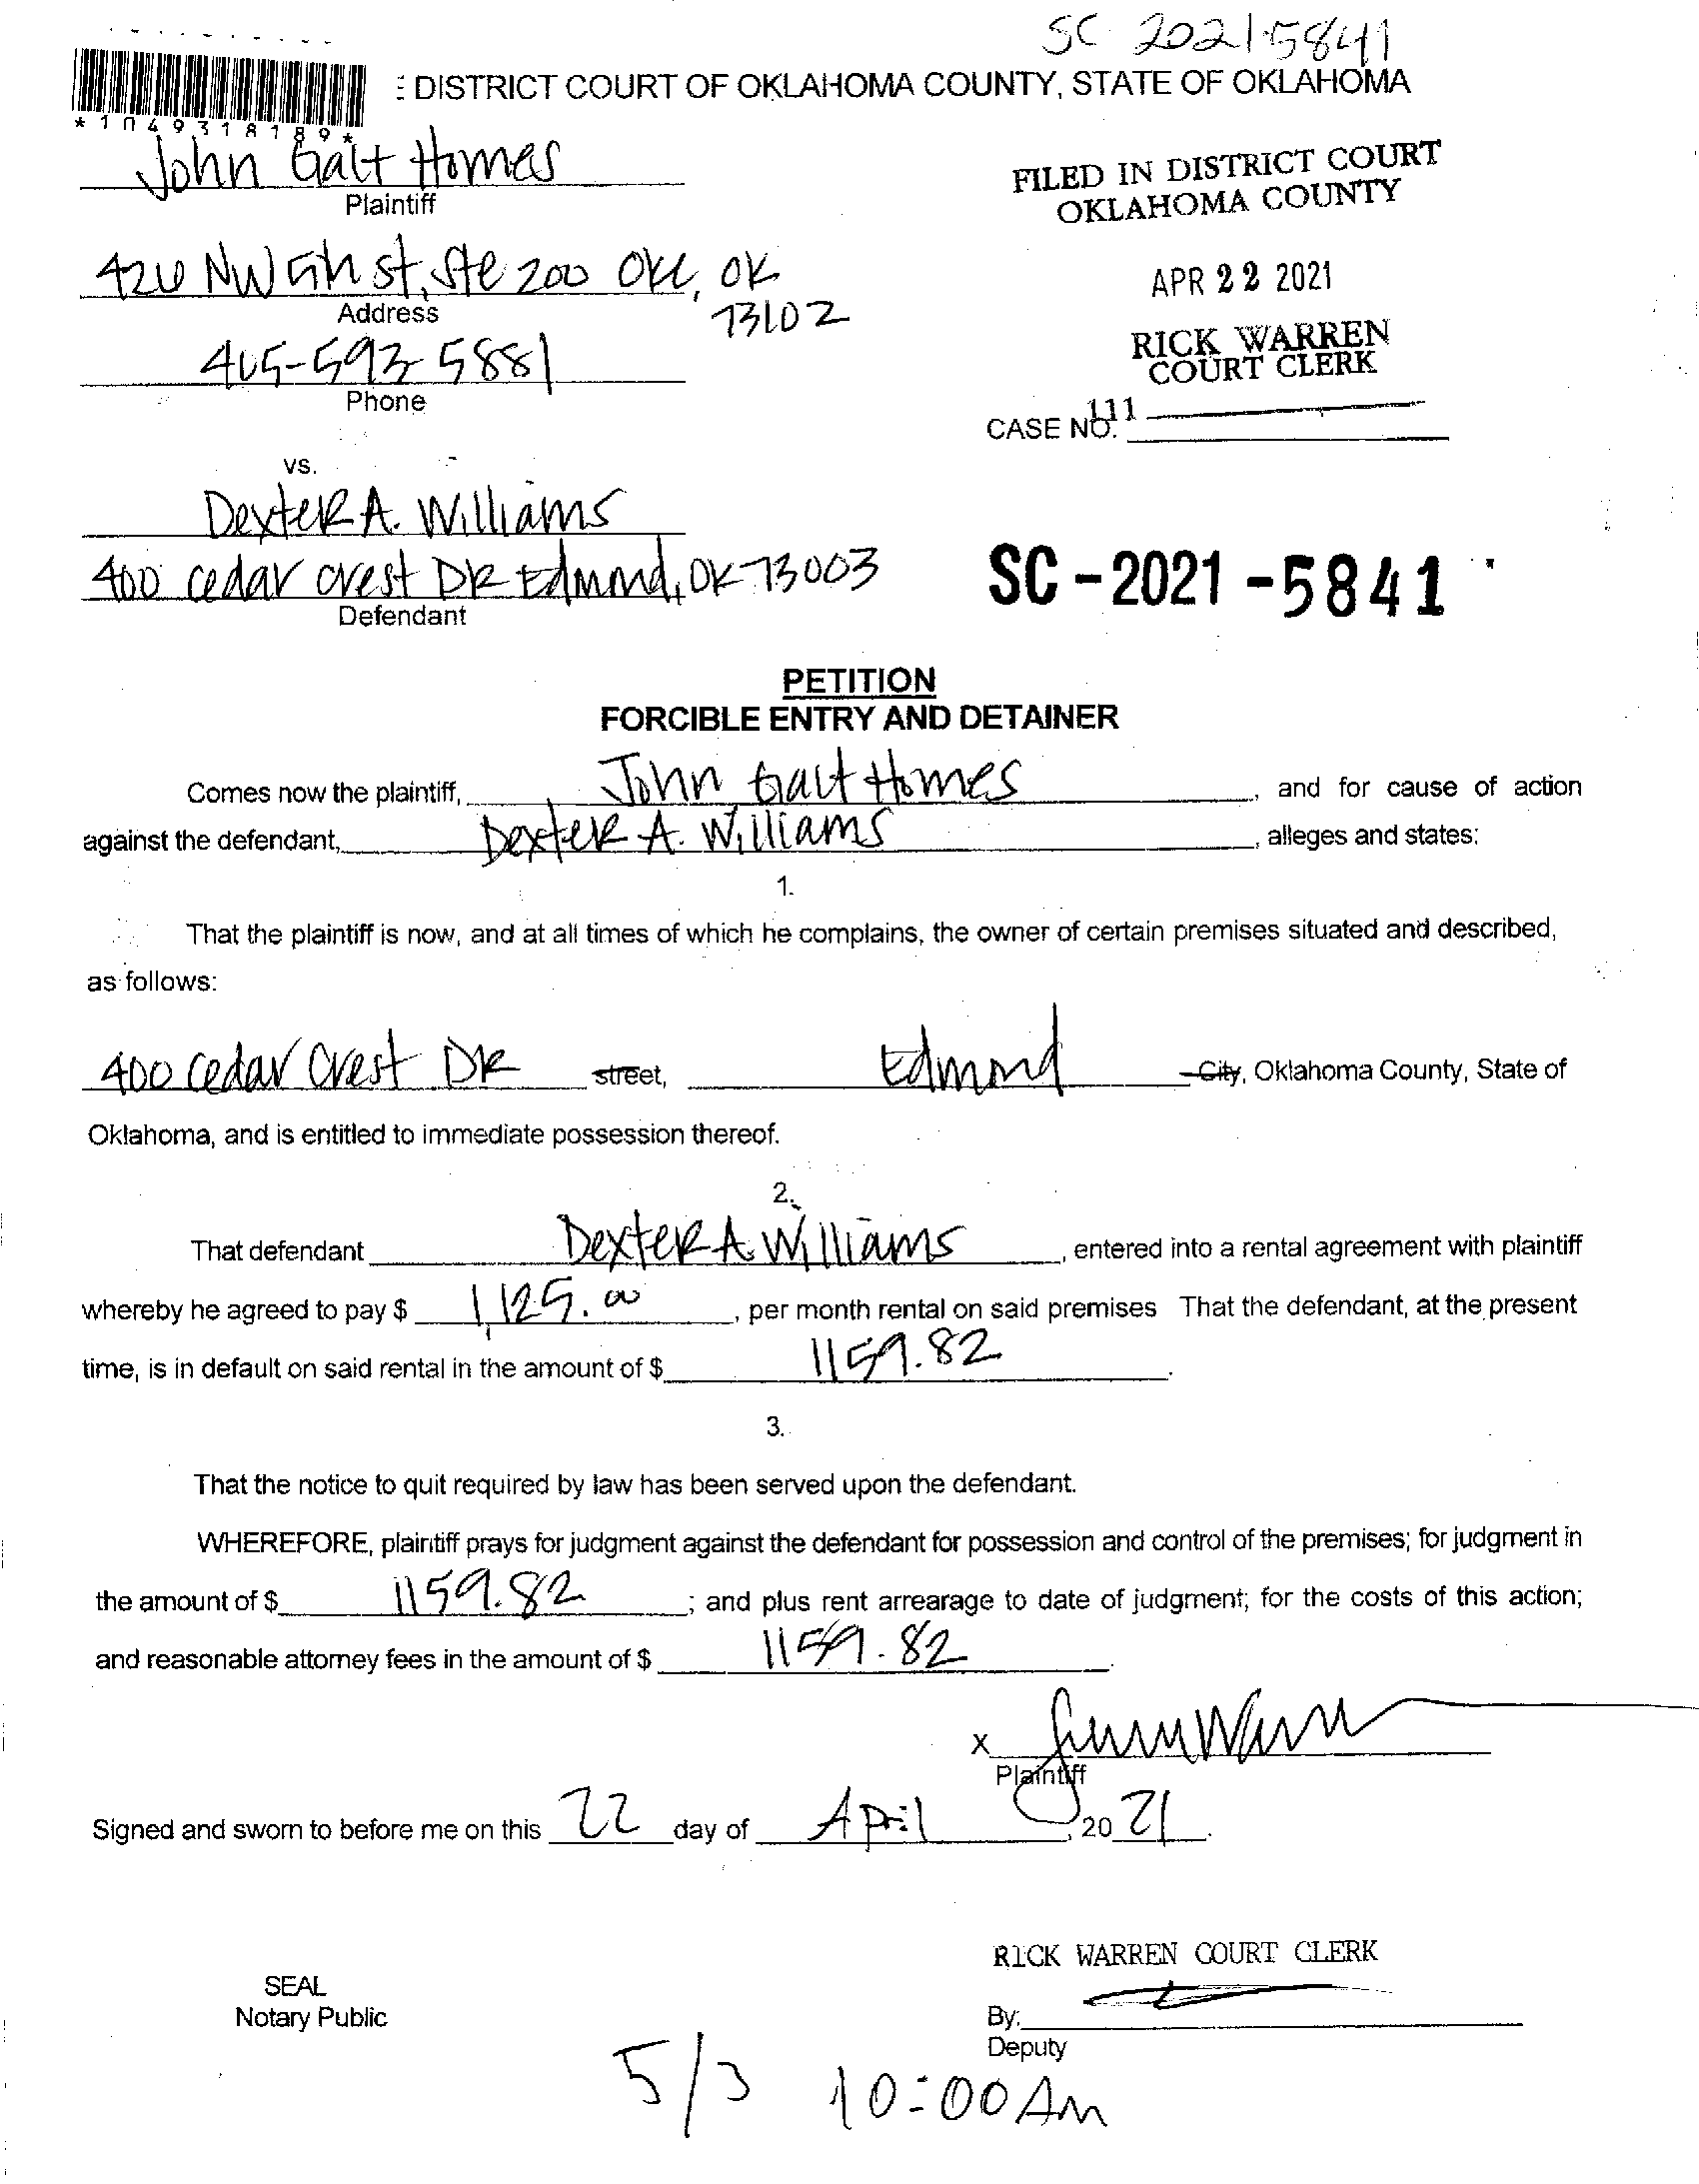 SC 2021-5841
DISTRICT COURT OF OKLAHOMA COUNTY, STATE OF OKLAHOMA
*1049318189*
John Galt Homes
Plaintiff
FILED IN DISTRICT COURT
OKLAHOMA COUNTY
426 NW 5th st, Ste 200 OKC, OK
73102
Address
APR 22 2021
405-593-5881
Phone
RICK WARREN
COURT CLERK
111
CASE NO.
vs.
Dexter A. Williams
400 cedar crest DR Edmond, OK 73003
Defendant
SC-2021-5841
PETITION
FORCIBLE ENTRY AND DETAINER
Comes now the plaintiff, John Galt Homes, and for cause of action
against the defendant, Dexter A. Williams, alleges and states:
1.
That the plaintiff is now, and at all times of which he complains, the owner of certain premises situated and described,
as follows:
400 cedar crest DR street, Edmond City, Oklahoma County, State of
Oklahoma, and is entitled to immediate possession thereof.
2.
That defendant Dexter A. Williams, entered into a rental agreement with plaintiff
whereby he agreed to pay $ 1,125.00, per month rental on said premises That the defendant, at the present
time, is in default on said rental in the amount of $ 1159.82.
3.
That the notice to quit required by law has been served upon the defendant.
WHEREFORE, plaintiff prays for judgment against the defendant for possession and control of the premises; for judgment in
the amount of $ 1159.82; and plus rent arrearage to date of judgment; for the costs of this action;
and reasonable attorney fees in the amount of $ 1159.82.
X
Plaintiff
Signed and sworn to before me on this 22 day of April, 20 21.
RICK WARREN COURT CLERK
SEAL
Notary Public
By:
Deputy
5/3 10:00 AM